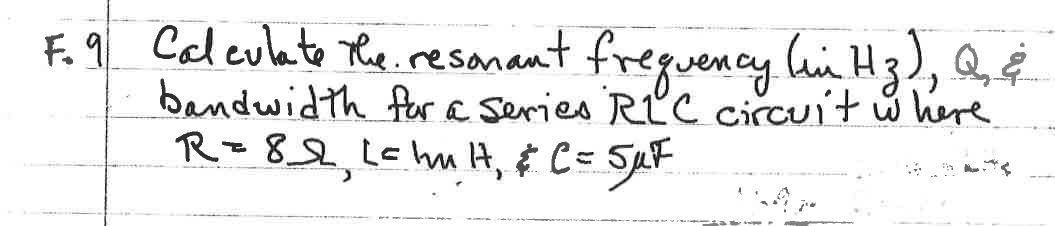 F. 9 Calculate the resonant frequency (in Hz), Q, &
bandwidth for a series RLC circuit where
R = 8Ω, L = 1mH, & C = 5μF